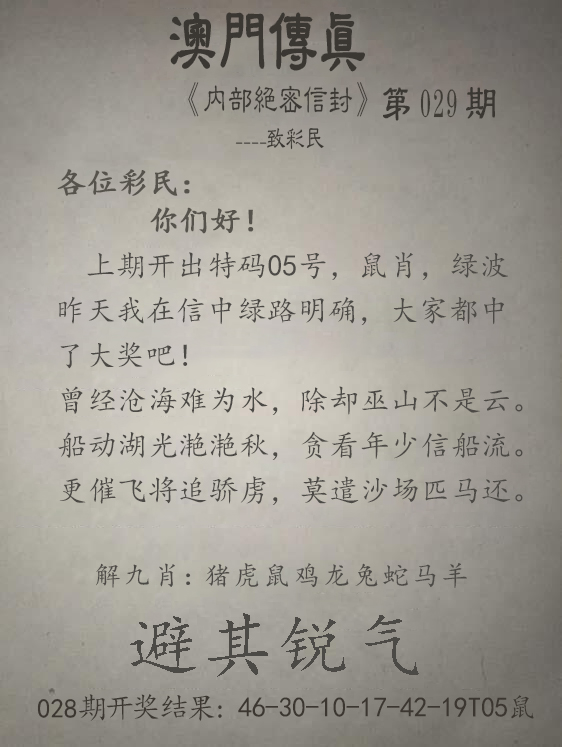 澳門傳眞
《内部絕密信封》第029期
----致彩民
各位彩民：
你们好！
上期开出特码05号，鼠肖，绿波
昨天我在信中绿路明确，大家都中
了大奖吧！
曾经沧海难为水，除却巫山不是云。
船动湖光滟滟秋，贪看年少信船流。
更催飞将追骄虏，莫遣沙场匹马还。
解九肖：猪虎鼠鸡龙兔蛇马羊
避其锐气
028期开奖结果：46-30-10-17-42-19T05鼠